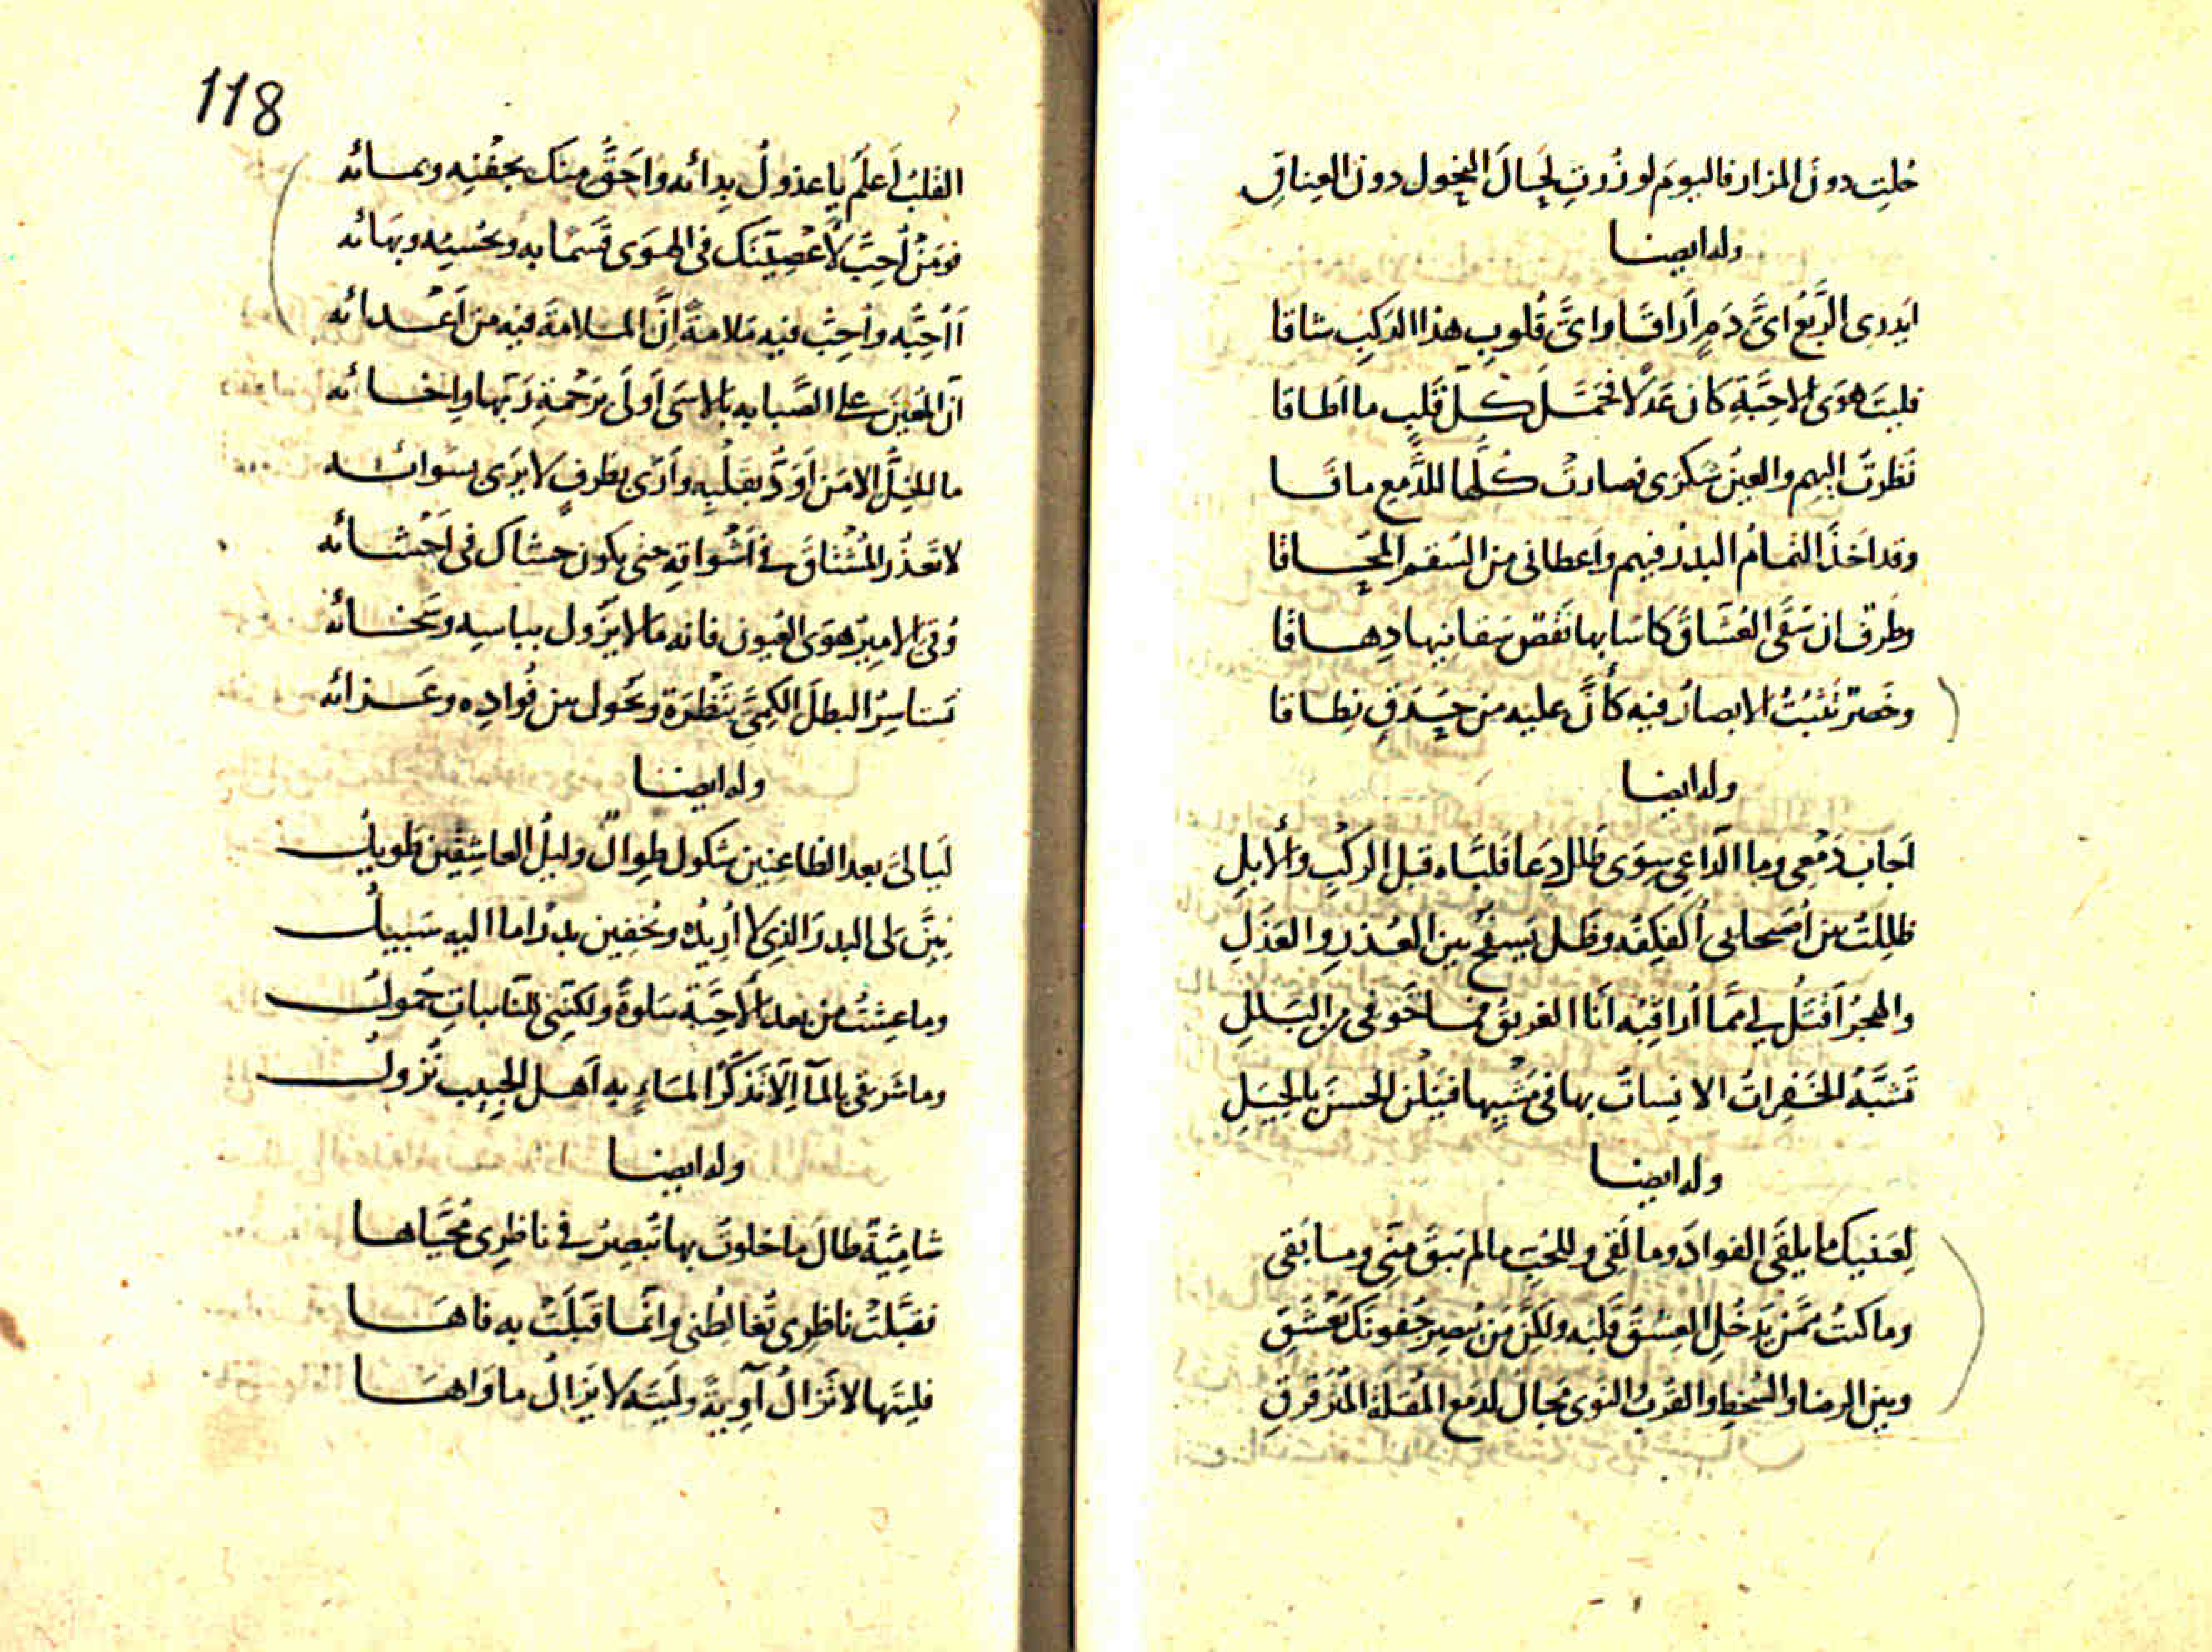 حُلتِ دونَ المزار فاليومَ لو زُرتِ لحَالَ النحول دون العِناقِ
وله ايضا
ايَدرى الرَّبْعُ اىَّ دَمٍ اَراقَا واىَّ قُلوبِ هذا الركبِ شاقا
فليتَ هَوَى الاحِبَّةِ كان عَدلًا فحَمَّلَ كلَّ قَلبٍ ما اَطاقا
نَظرتُ اليهم والعينُ سَكرَى فصارتْ كُلُّها للدَّمع ماقا
وقد اَخَذَ التمامُ البدرُ فيهم واَعطانى من السُقم المُحَاقا
وطرفٌ ان سَقَى العُشّاقَ كاسًا بها نَقصٌ سَقانيها دِهاقا
وخَصرٌ تَثْبُتُ الابصارُ فيه كأنَّ عليه من حَدَقٍ نِطاقا
وله ايضا
اَجابَ دَمْعِى وما الدَّاعِى سِوَى طَلَلِ دَعَا فَلبَّاه قبلَ الركْبِ والأبلِ
ظلِلتُ بين اُصَيحابى اُكَفكِفُه وظَل يَسفَحُ بين العُذرِ والعَذَلِ
والهجرُ اَقتَلُ لى ممَّا اُراقِبُه اَنا الغريقُ فما خَوفى من البَلَلِ
تَشَبَّهُ الخَفِراتُ الانِساتُ بها فى مَشْيِها فيَنَلْنَ الحسنَ بالحِيَلِ
وله ايضا
لِعَينيكِ ما يلقَى الفوادُ وما لَقِى وللحُبِّ ما لم يَبقَ مِنّى وما بَقى
وما كنتُ ممَّن يَدخُلِ العِشقُ قَلبَه ولكِنَّ مَن يُبصِر جُفونَكِ يَعْشَقِ
وبين الرضا والسُخطِ والقُربُ النَوى مَجالٌ لدمع المُقلة المُتَرَقرِقِ
118
القلبُ اَعلَمُ يا عذولُ بِدائه واَحَقُّ منك بجَفْنِه وبمائه
فوَمَنْ اُحِبُّ لَاَعْصِيَنَّك فى الهوَى قَسَمًا به وبحُسنِه وبهَائه
أاُحِبُّه واُحِبُّ فيه مَلامةً اِنَّ الملامةَ فيه من اَعْدائه
اِنَّ المُعينَ على الصَّبابه بالاسَى اَولَى برَحْمَةِ رَبّها واِخائه
ما الخِلُّ الا مَن اَوَدُّ بقَلْبِه واَرَى بطَرفٍ لا يَرَى بسَوائه
لا تَعذُرِ المُشْتاقَ فى اَشْواقِه حتى يكون حَشاك فى اَحْشائه
وُقِىَ الامِيرُ هوَى العُيون فانه مَا لا يَزُول بباسِه وسَخائه
يَستاسِرُ البطلَ الكَمِىَّ بنَظْرَةٍ ويَحُول بين فُوادِه وعَزائه
وله ايضا
لَيالىَّ بعد الظاعِنين شكول طِوالٌ وليلُ العاشِقِين طَويلُ
يُبِنَّ لى البدرَ الذى لا اُريدُه ويُخفِين بدرًا ما اليه سَبيلُ
وما عِشتُ من بعد الأحِبَّة سَلوةً ولكنّنى للنائباتِ حَمُولُ
وما شَرَقى بالمآ اِلّا تَذَكّرًا لمَاءٍ به اَهل الحبيب نُزولُ
وله ايضا
شامِيّةٌ طالَ ما خلوتُ بها تُبصِرُ فى ناظِرى مُحَيَّاها
فقبَّلَتْ ناظِرى تُغالِطُنى وانَّما قَبَّلَتْ به فاهَا
فليتَها لا تَزالُ آوِيةً ولَيتَه لا يَزالُ ماوَاهَا